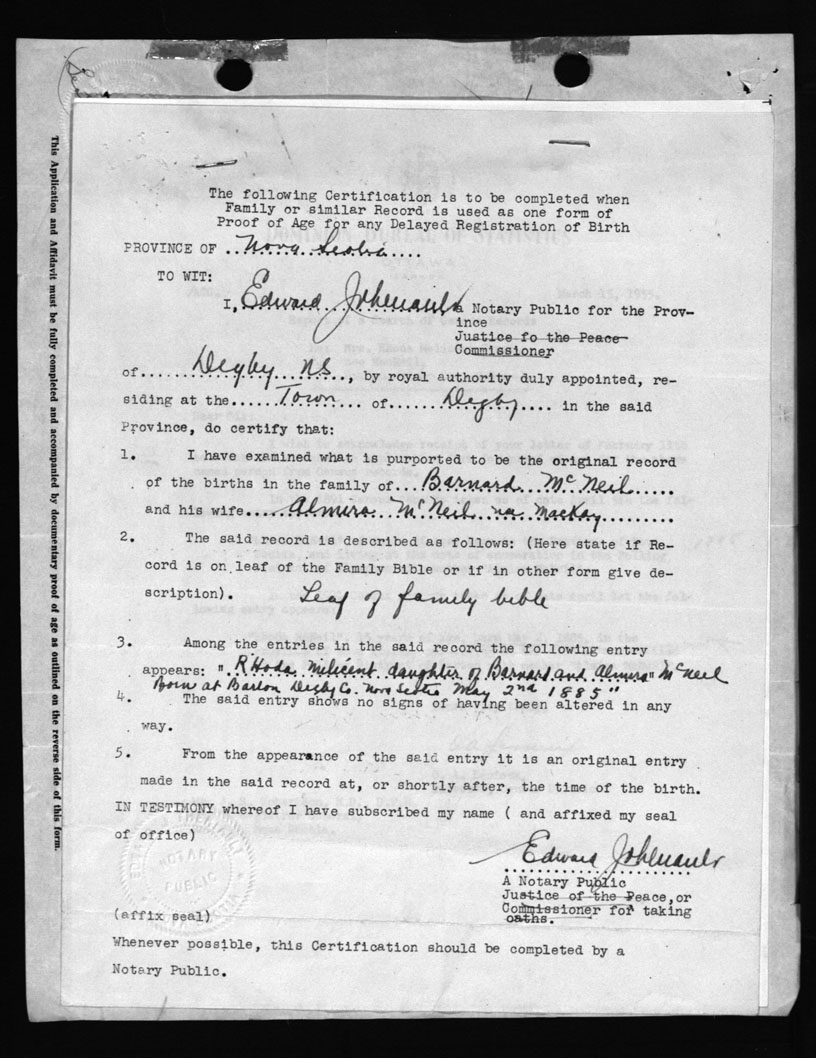 The following Certification is to be completed when
Family or similar Record is used as one form of
Proof of Age for any Delayed Registration of Birth
PROVINCE OF ..Nova Scotia....
TO WIT:
I, Edward a Notary Public for the Prov-
ince
Justice fo the Peace
Commissioner
of....Digby NS...., by royal authority duly appointed, re-
siding at the......Town...... of......Digby.... in the said
Province, do certify that:
1. I have examined what is purported to be the original record
of the births in the family of...Barnard McNeil.....
and his wife....Almira McNeil MacKay.........
2. The said record is described as follows: (Here state if Re-
cord is on leaf of the Family Bible or if in other form give de-
scription). Leaf of family bible
3. Among the entries in the said record the following entry
appears: "R'Hoda Milicent daughter of Barnard and Almira" McNeil
Born at Barton Digby Co. Nova Scotia May 2nd 1885"
4. The said entry shows no signs of having been altered in any
way.
5. From the appearance of the said entry it is an original entry
made in the said record at, or shortly after, the time of the birth.
IN TESTIMONY whereof I have subscribed my name ( and affixed my seal
of office)
Edward
A Notary Public
Justice of the Peace, or
Commissioner for taking
oaths.
NOTARY
PUBLIC
(affix seal)
Whenever possible, this Certification should be completed by a
Notary Public.
This Application and Affidavit must be fully completed and accompanied by documentary proof of age as outlined on the reverse side of this form.